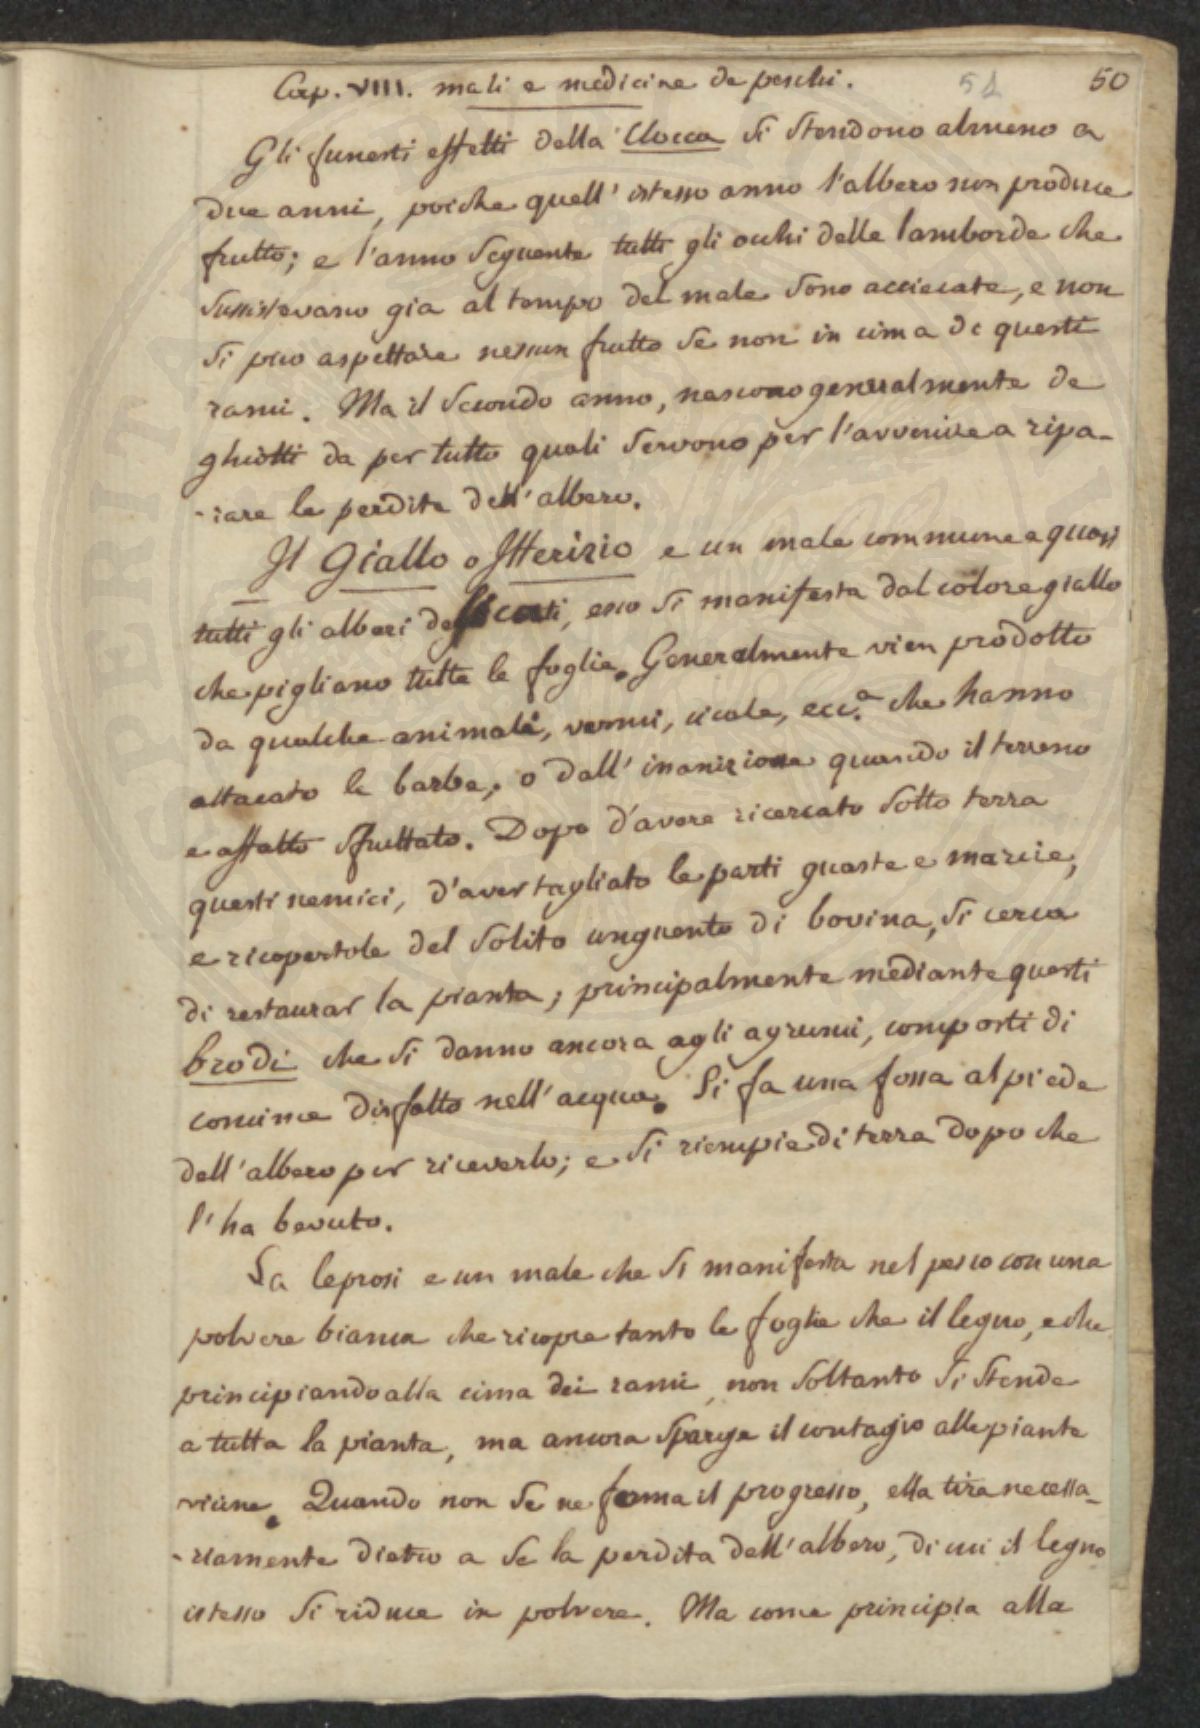 Cap. VIII. mali e medicine de peschi. 51 50
Gli funesti effetti della Clocca si stendono almeno a
due anni, poiche quell' istesso anno l'albero non produce
frutto; e l'anno seguente tutti gli occhi delle lamborde che
sussistevano gia al tempo del male sono acciecate, e non
si puo aspettare nessun frutto se non in cima di questi
rami. Ma il secondo anno, nascono generalmente de
ghiotti da per tutto quali servono per l'avvenire a ripa-
-rare le perdite dell' albero.
Il Giallo o Itterizio e un male commune a quasi
tutti gli alberi delicati, esso si manifesta dal colore giallo
che pigliano tutte le foglie. Generalmente vien prodotto
da qualche animale, vermi, cicale, ecc.a che hanno
attacato le barbe, o dall' inanizione quando il terreno
e affatto sfruttato. Dopo d'avere ricercato sotto terra
questi nemici, d'aver tagliato le parti guaste e marcie,
e ricopertole del solito unguento di bovina, si cerca
di restaurar la pianta; principalmente mediante questi
brodi che si danno ancora agli agrumi, composti di
concime disfatto nell' acqua. Si fa una fossa al piede
dell' albero per riceverlo; e si riempie di terra dopo che
l' ha bevuto.
La leprosi e un male che si manifesta nel pesco con una
polvere bianca che ricopre tanto le foglie che il legno, e che
principiando alla cima dei rami, non soltanto si stende
a tutta la pianta, ma ancora sparge il contagio alle piante
vicine. Quando non se ne ferma il progresso, ella tira necessa-
-riamente dietro a se la perdita dell' albero, di cui il legno
istesso si riduce in polvere. Ma come principia alla